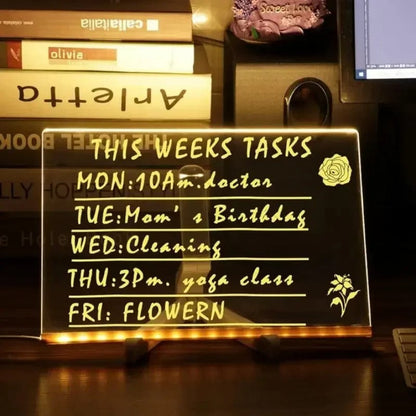 callaitalia
olivia
Arletta
THE HOTEL BOOK
LLY HOPPEN
e Hole
Sweet Love
THIS WEEKS TASKS
MON:10Am.doctor
TUE:Mom's Birthday
WED:Cleaning
THU:3Pm. yoga class
FRI: FLOWERN